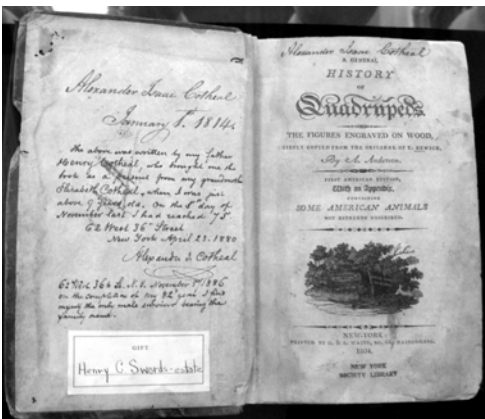 Alexander Isaac Cotheal
January 1. 1814.
The above was written by my father
Henry Cotheal, who brought me the
book as a present from my grandmother
Elizabeth Cotheal, when I was just
above 9 years old. On the 5th day of
November last I had reached 75.
62 West 36th Street
New York April 23. 1880
Alexander I. Cotheal
62 West 36th St. N.Y. November 5, 1886
on the completion of my 82d year I find
myself the only male survivor bearing the
family name.
GIFT
Henry C. Swords-estate
Alexander Isaac Cotheal
A GENERAL
HISTORY
OF
Quadrupeds
THE FIGURES ENGRAVED ON WOOD,
CHIEFLY COPIED FROM THE ORIGINAL OF T. BEWICK,
By A. Anderson.
FIRST AMERICAN EDITION,
With an Appendix,
CONTAINING
SOME AMERICAN ANIMALS
NOT HITHERTO DESCRIBED.
NEW-YORK:
PRINTED BY G. & R. WAITE, NO. 64, MAIDEN-LANE.
1804.
NEW YORK
SOCIETY LIBRARY